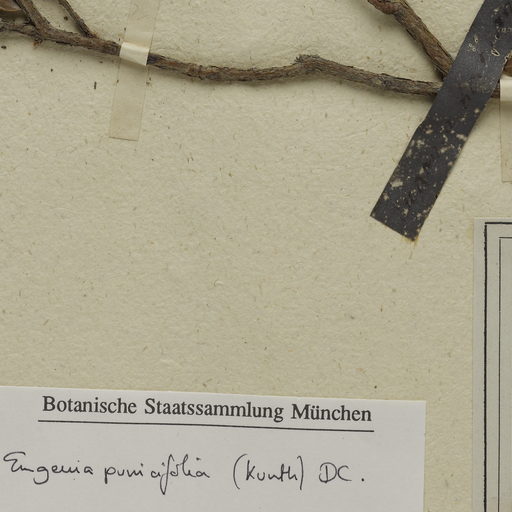 Botanische Staatssammlung München
Eugenia punicifolia (Kunth) DC.